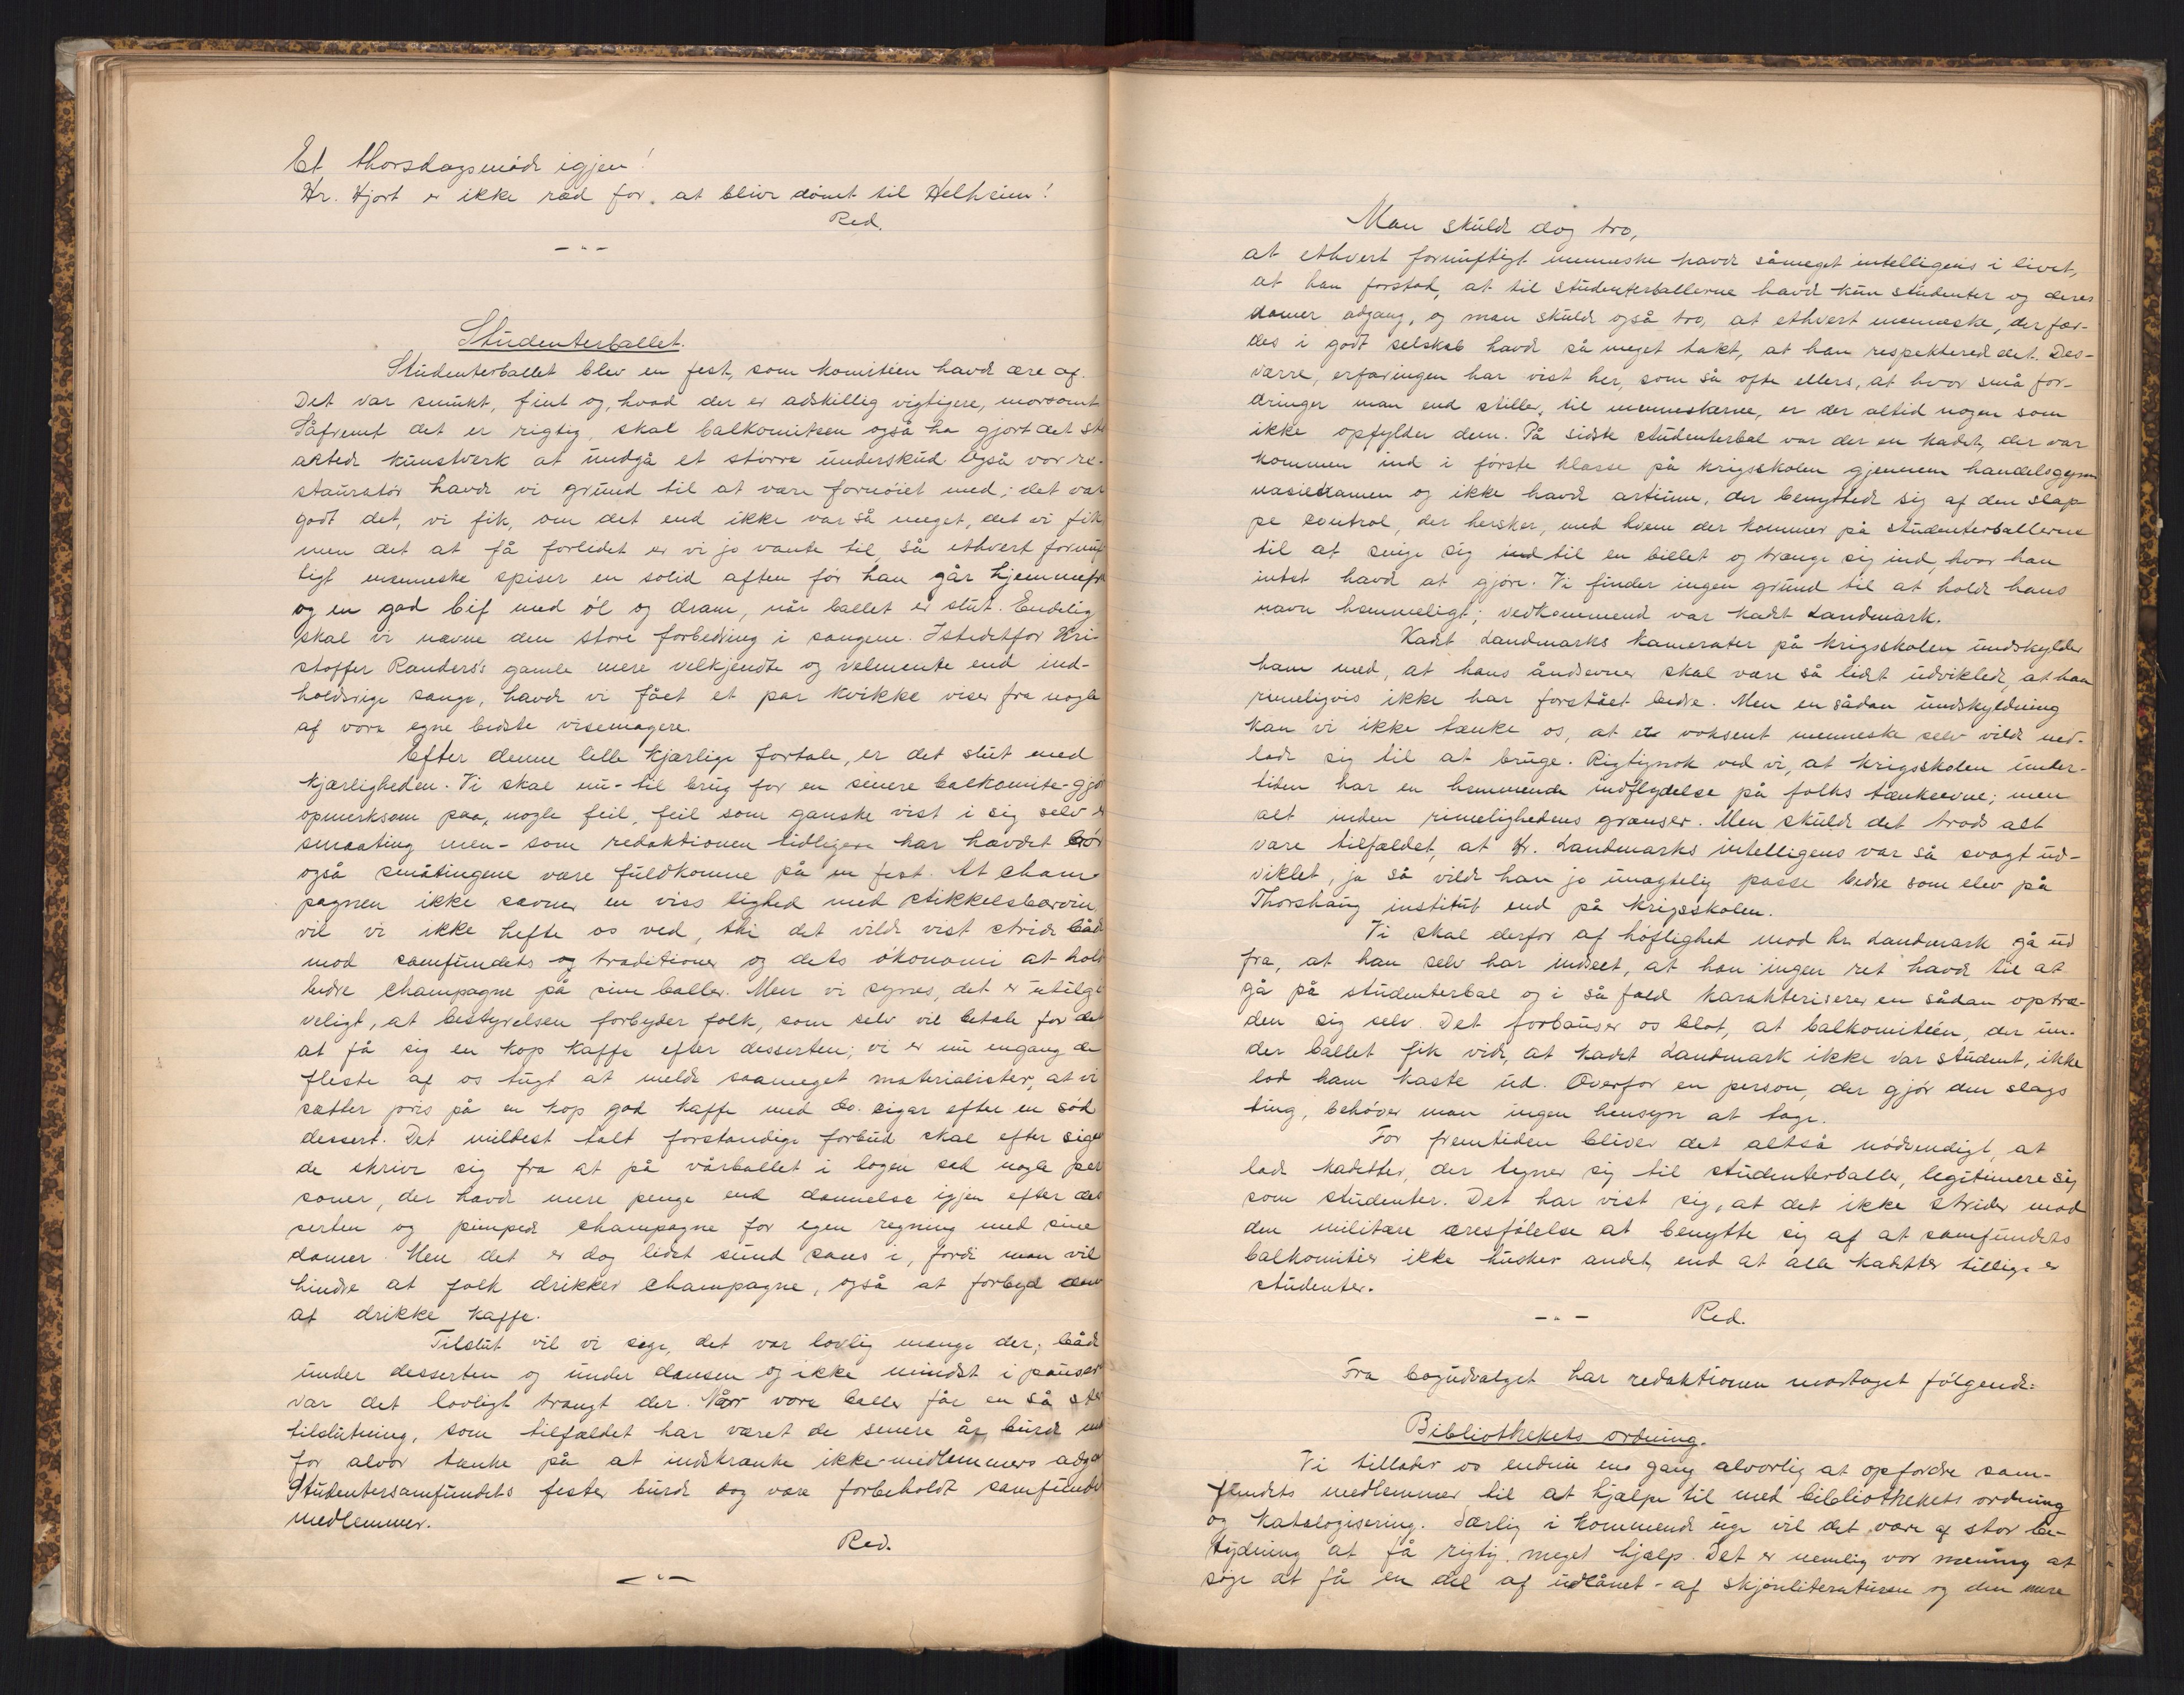 Et thorsdagsmøde igjen!
Hr. Hjort er ikke ræd for, at blive dømt til Helheim!
Red.
Studenterballet.
Studenterballet blev en fest, som komiteen havde ære af.
Det var smukt, fint og, hvad der er adskillig vigtigere, morsomt
Såfremt det er rigtig, skal balkomiteen også ha gjort det
kunstverk at undgå et større underskud. Også vor re-
stauratør havde vi grund til at være fornøiet med; det var
godt det, vi fik, om det end ikke var så meget, det vi fik
men det at få forlidet er vi jo vante til, så ethvert fornuf
tigt menneske spiser en solid aften før han går hjemmefra
og en god bif med øl og dram, når ballet er slut. Endelig
skal vi nævne den store forbedring i sangene. Istedetfor Kri-
stoffer Randers's gamle mere velkjendte og velmente end ind-
holdsrige sange, havde vi fået et par kvikke viser fra nogle
af vore egne bedste visemagere.
Efter denne lille kjærlige fortale, er det slut med
kjærligheden. Vi skal nu - til brug for en senere balkomite - gjør
opmerksom paa, nogle feil, feil som ganske vist i sig selv er
smaating men - som redaktionen tidligere har hævdet bør
også småtingene være fuldkomne på en fest. At cham-
pagnen ikke savner en viss lighed med stikkelsbærvin,
vil vi ikke hefte os ved, thi det vilde vist stride både
mod samfundets og traditioner og dets økonomi at holde
bedre champagne på sine baller. Men vi synes, det er utilgi
veligt, at bestyrelsen forbyder folk, som selv vil betale for det
at få sig en kop kaffe efter desserten; vi er nu engang de
fleste af os tugt at melde saameget materialister, at vi
sætter pris på en kop god kaffe med do. sigar efter en sød
dessert. Det mildest talt forstandige forbud skal efter sigen
de skrive sig fra at på vårballet i logen sad nogle per
soner, der havde mere penge end dannelse igjen efter des
serten og pimpede champagne for egen regning med sine
damer. Men det er dog lidet sund sans i, fordi man vil
hindre at folk drikker champagne, også at forbyde dem
at drikke kaffe.
Tilslut vil vi sige, det var lovlig mange der; både
under desserten og under dansen og ikke mindst i pauser
var det lovligt trangt der. Når vore baller får en så stor
tilslutning, som tilfældet har været de senere år, burde man
for alvor tænke på at indskrænke ikke-medlemmers adgan
Studentersamfundets fester burde dog være forbeholdt samfundet
medlemmer.
Red.
Man skulde dog tro,
at ethvert fornuftigt menneske havde såmeget intelligens i livet,
at han forstod, at til studenterballerne havde kun studenter og deres
damer adgang, og man skulde også tro, at ethvert menneske, der fær-
des i godt selskab havde så meget takt, at han respekterede det. Des-
værre, erfaringen har vist her, som så ofte ellers, at hvor små for-
dringer man end stiller, til menneskerne, er der altid nogen som
ikke opfylder dem. På sidste studenterbal var der en kadet, der var
kommen ind i første klasse på krigsskolen gjennem handelsgym
nasiexamen og ikke havde artium, der benyttede sig af den slap-
pe control, der hersker, med hvem der kommer på studenterballerne
til at snige sig ind til en billet og trænge sig ind, hvor han
intet havde at gjøre. Vi finder ingen grund til at holde hans
navn hemmeligt; vedkommende var kadet Landmark.
Kadet Landmarks kamerater på krigsskolen undskylder
ham med, at hans åndsevner skal være så lidt udviklede, at han
rimeligvis ikke har forstået bedre. Men en sådan undskyldning
kan vi ikke tænke os, at et voksent menneske selv vilde ned-
lade sig til at bruge. Rigtignok ved vi, at krigsskolen under-
tiden har en hemmende indflydelse på folks tænkeevne; men
alt inden rimelighedens grænser. Men skulde det trods alt
være tilfældet, at Hr. Landmarks intelligens var så svagt ud-
viklet, ja så vilde han jo unægtelig passe bedre som elev på
Thorshaug institut end på krigsskolen.
Vi skal derfor af høflighed mod hr. Landmark gå ud
fra, at han selv har indseet, at han ingen ret havde til at
gå på studenterbal og i så fald karakteriserer en sådan optræ-
den sig selv. Det forbauser os blot, at balkomitéen, der un-
der ballet fik vide, at kadet Landmark ikke var student, ikke
lod ham kaste ud. Overfor en person, der gjør den slags
ting, behøver man ingen hensyn at tage.
For fremtiden bliver det altså nødvendigt, at
lade kadetter, der tegner sig til studenterballer, legitimere sig
som studenter. Det har vist sig, at det ikke strider mod
den militære æresfølelse at benytte sig af at samfundets
balkomitéer ikke husker andet, end at alle kadetter tillige er
studenter.
Red.
Fra bogudvalget har redaktionen modtaget følgende:
Bibliothekets ordning.
Vi tillader os endnu en gang alvorlig at opfordre sam-
fundets medlemmer til at hjælpe til med bibliothekets ordning
og katalogisering. Særlig i kommende uge vil det være af stor be-
tydning at få rigtig meget hjælp. Det er nemlig vor mening at
søge at få en del af udlånet - af skjønliteraturen og den mere